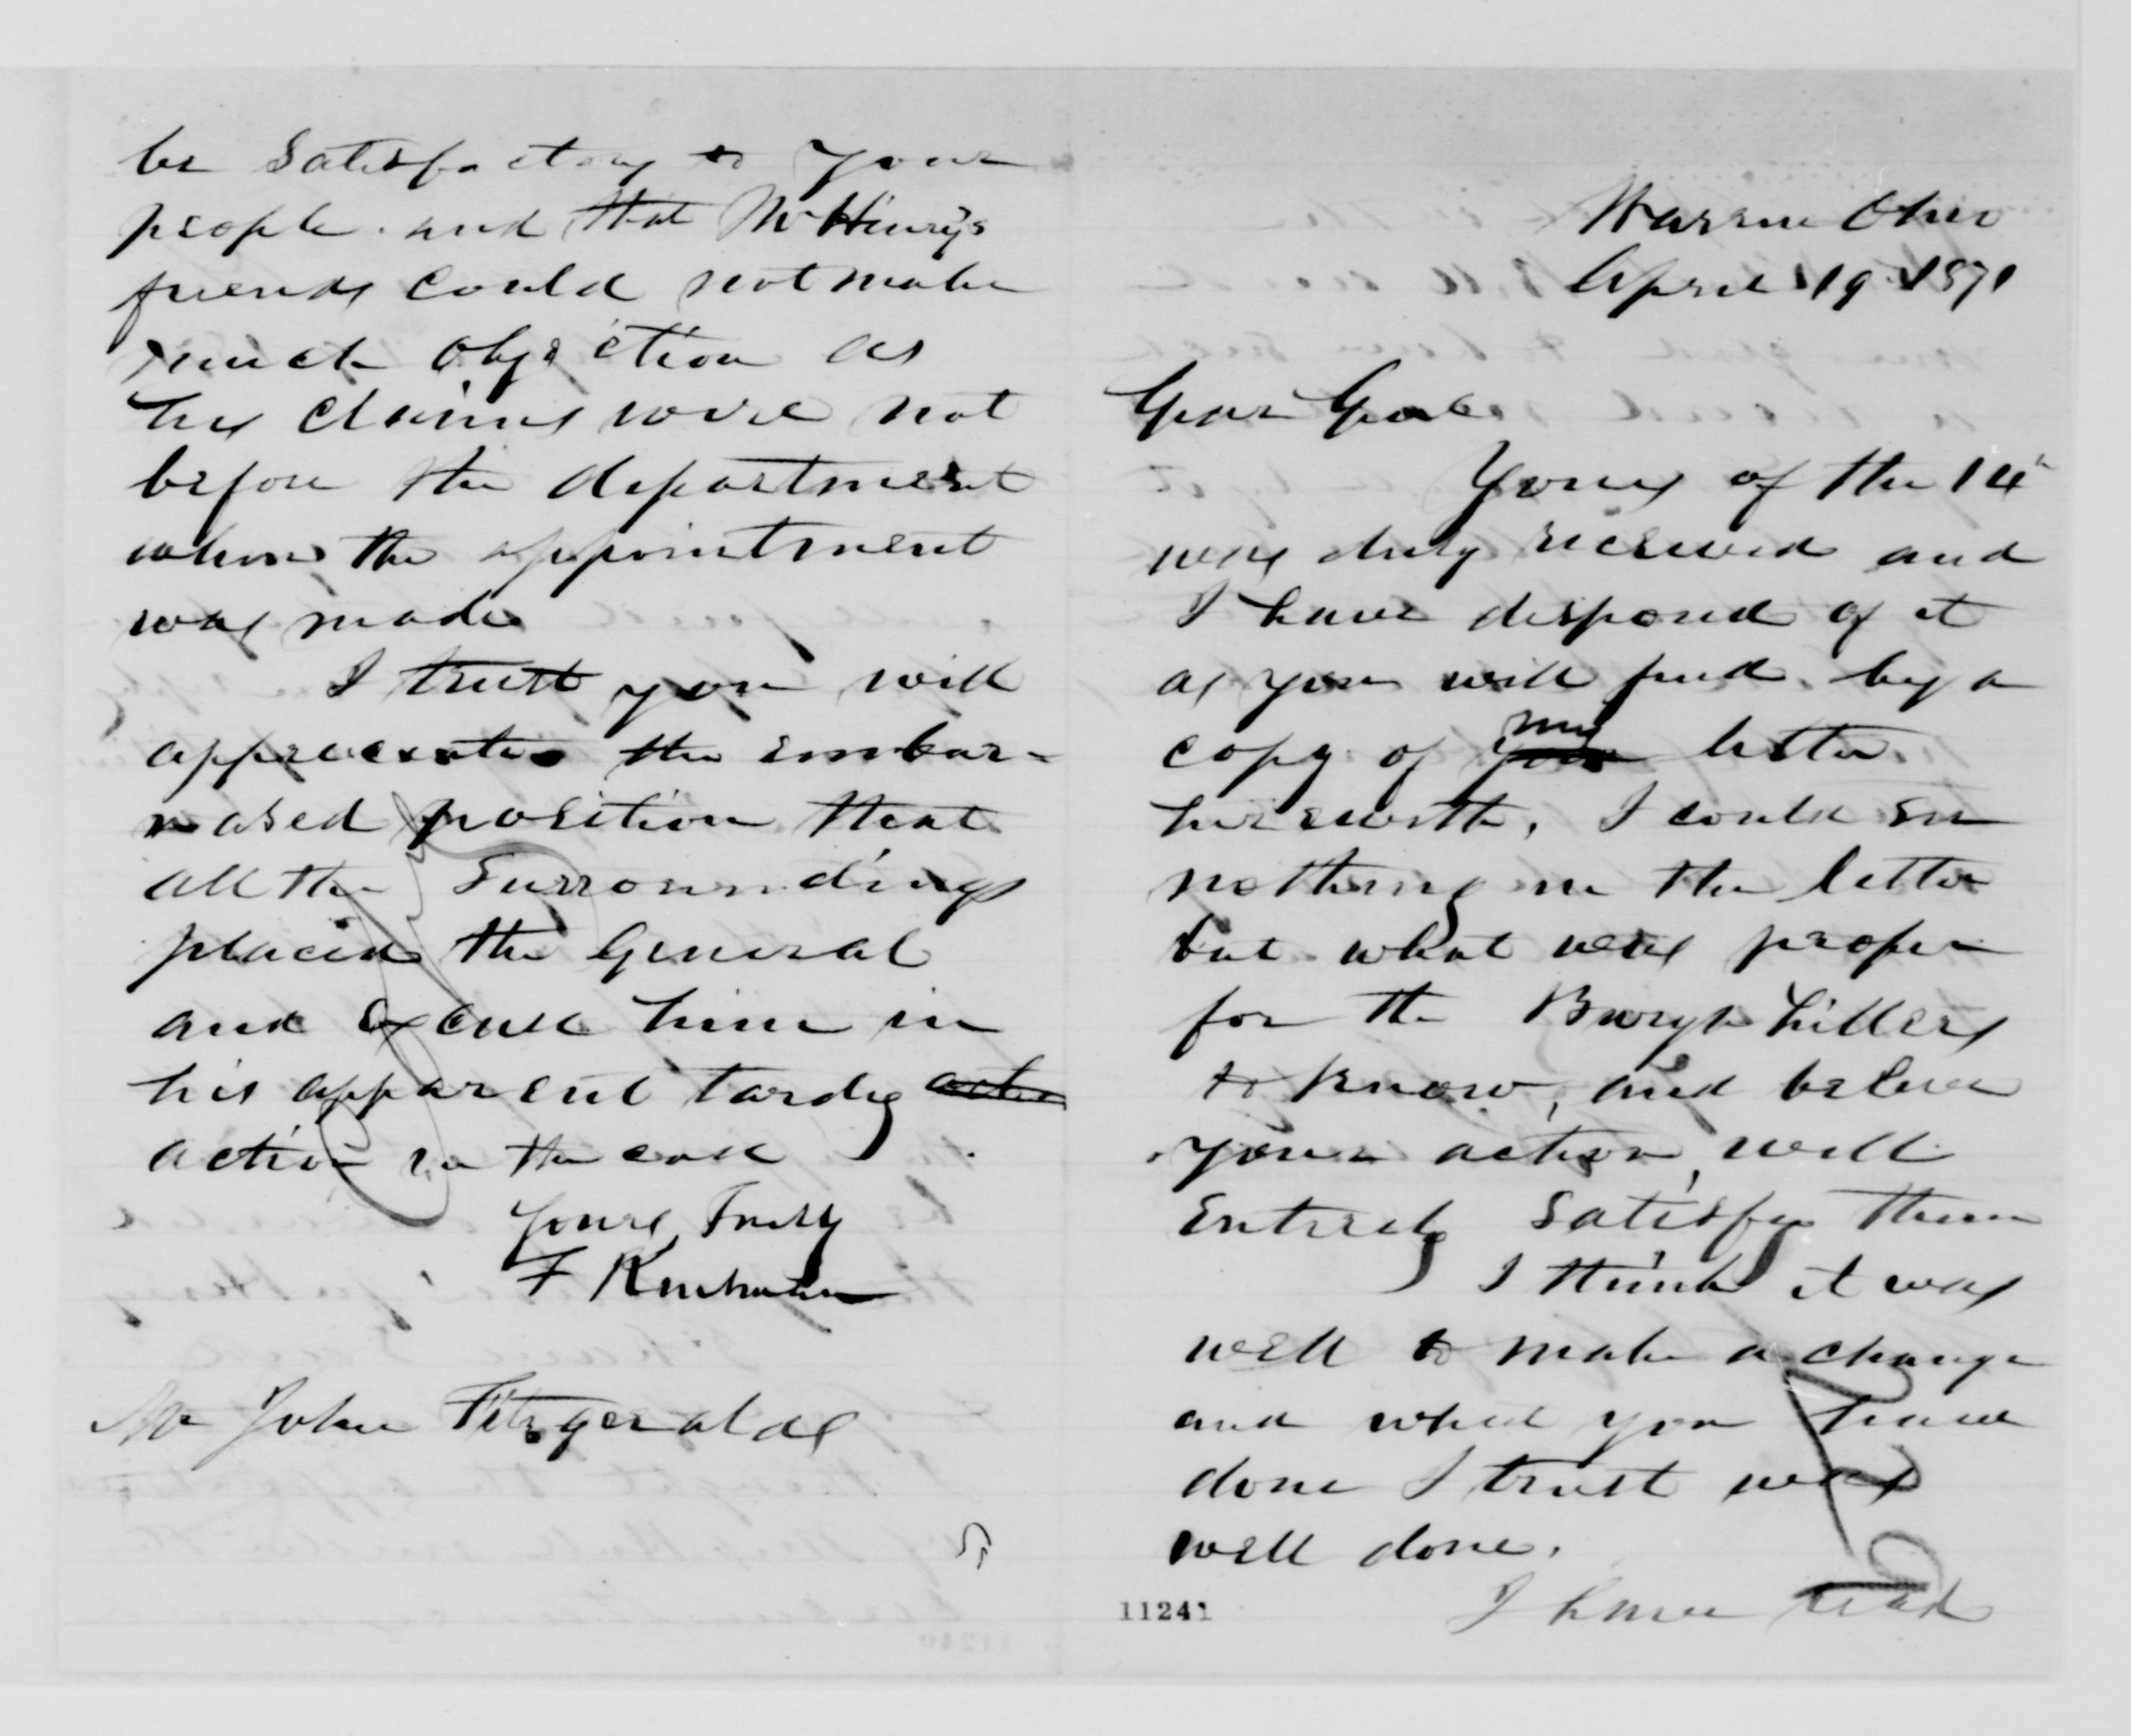 be Satisfactory to your
people. and that McHenry's
friends could not make
much objection as
his claims were not
before the department
when the appointment
was made
I trust you will
appreciate the embar-
rased position that
all the Surroundings
placed the General
and excuse him in
his apparent tardy
action in the case
Yours Truly
F Kinsman
Mr John Fitzgerald
Warren Ohio
April 19 1871
Dear Genl
Yours of the 14"
was duly received and
I have disposed of it
as you will find by a
copy of my letter
herewith, I could see
nothing in the letter
but what was proper
for the Burgh hillers
to know, and believe
your action will
Entirely Satisfy them
I think it was
well to make a change
and what you have
done I trust was
well done.
I have read
11241